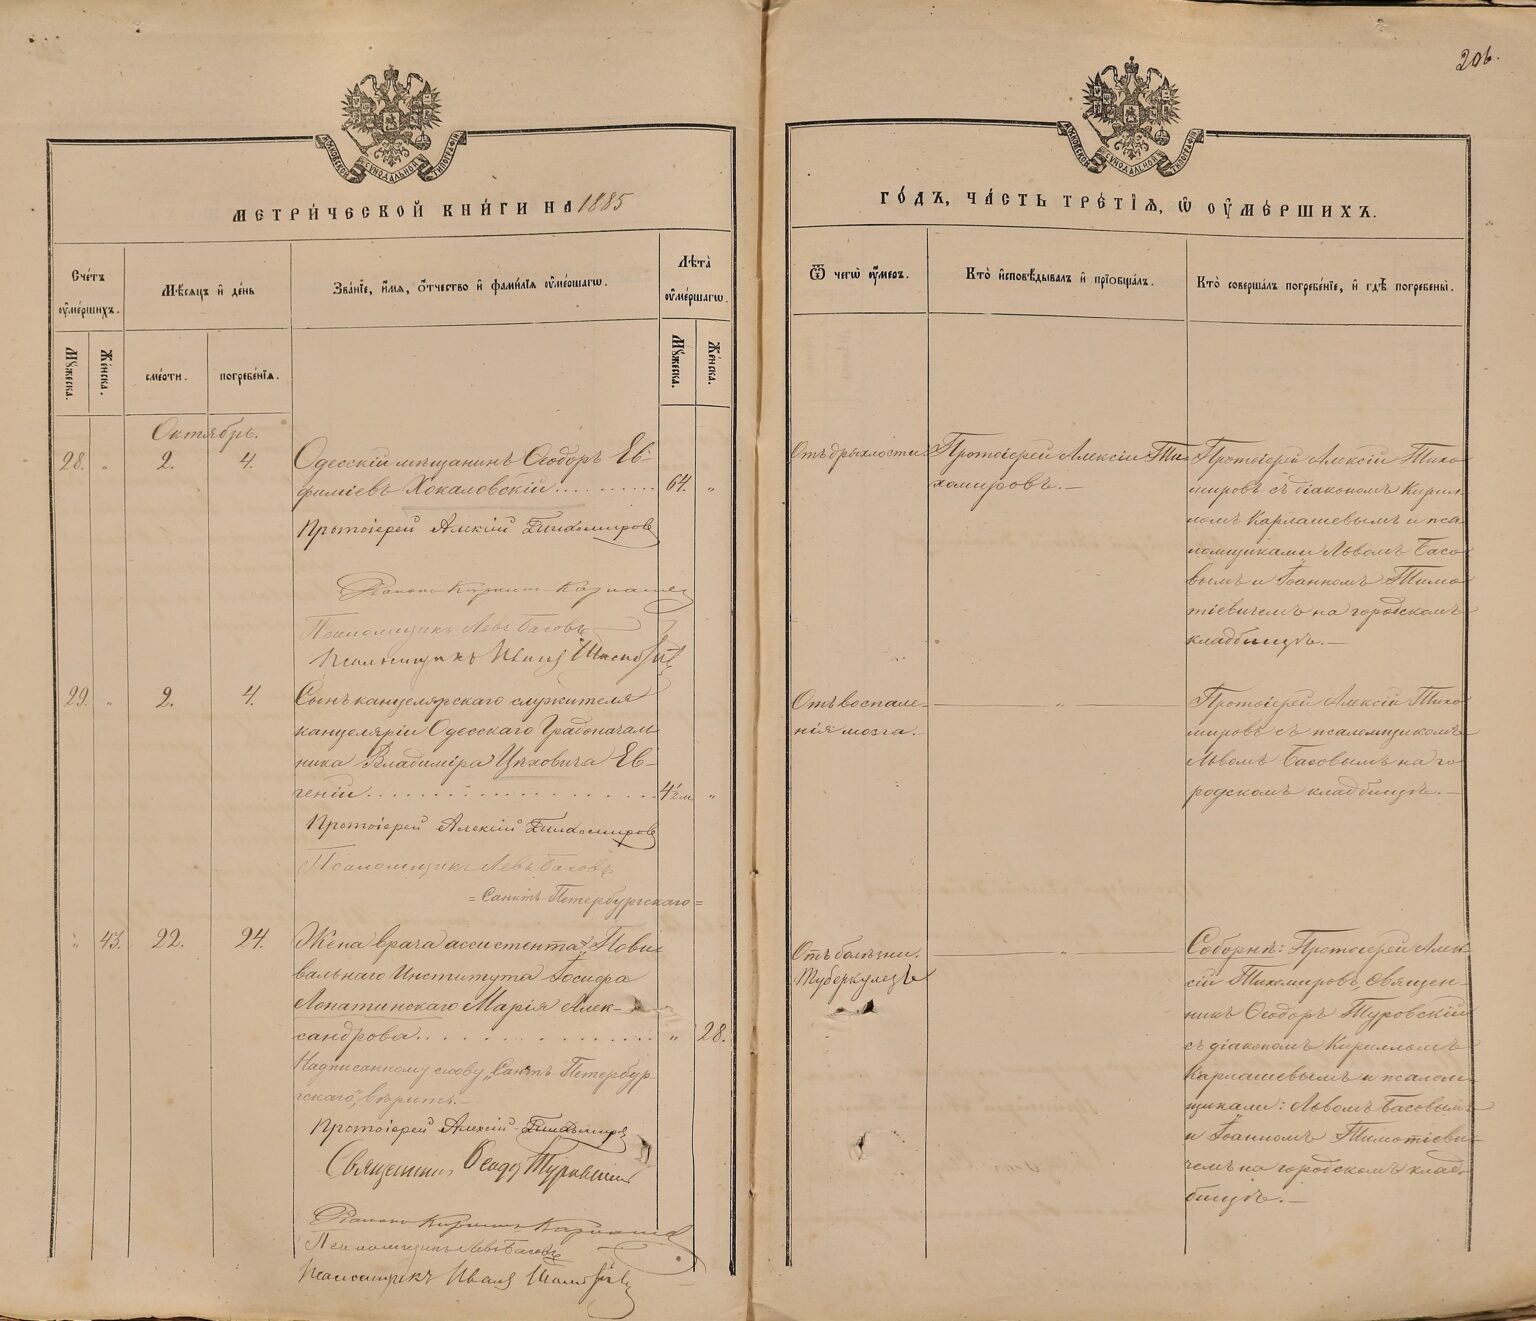 206.
МОСКОВСКОЙ СѴНОДАЛЬНОЙ ТИПОГРАФІИ
МОСКОВСКОЙ СѴНОДАЛЬНОЙ ТИПОГРАФІИ
МЕТРИ́ЧЕСКОЙ КНИ́ГИ НА 1885
ГО́ДЪ, ЧА́СТЬ ТРЕ́ТІѦ, Ѡ ОУМЕ́РШИХЪ.
Сче́тъ
оумершихъ.
Мѣсяцъ и день
Зва́нїе, и́мѧ, о́тчество и фами́лїѧ оуме́ршагѡ.
Лѣта̀
оуме́ршагѡ.
Ѿ чегѡ̀ оу́меръ.
Кто̀ исповѣ́дывалъ и прїобща́лъ.
Кто̀ соверша́лъ погребе́нїе, и гдѣ̀ погребены̀.
Мꙋжеска.
Же́нска.
сме́рти.
погребе́нїѧ.
Мꙋжеска.
Же́нска.
Октябрь.
28. " 2. 4.
Одесскій мѣщанинъ Ѳеодоръ Ев-
фиміевъ Хокаловскій.......... 64. "
Протоіерей Алексій Тихомировъ
Діаконъ Кириллъ Карлашев
Псаломщикъ Левъ Басовъ
Псаломщикъ Иванъ
Отъ дряхлости.
Протоіерей Алексій Ти-
хомировъ.—
Протоіерей Алексій Тихо-
мировъ съ діакономъ Кирил-
ломъ Карлашевымъ и пса-
ломщиками Львомъ Басо-
вымъ и Іоанномъ Тимо-
тіевичемъ на городскомъ
кладбищѣ.—
29. " 2. 4.
Сынъ канцелярскаго служителя
канцеляріи Одесскаго Градоначаль-
ника Владиміра Цѣховича Ев-
геній.................. 4½ м. "
Протоіерей Алексій Тихомировъ
Псаломщикъ Левъ Басовъ
Отъ воспале-
нія мозга.—
— " —
Протоіерей Алексій Тихо-
мировъ съ псаломщикомъ
Львомъ Басовымъ на го-
родскомъ кладбищѣ.—
= Санктъ-Петербургскаго =
" 43. 22. 24.
Жена врача ассистента Пови-
вальнаго Института Іосифа
Лопатинскаго Марія Алек-
сандрова............... " 28.
Надписанному слову „Санктъ-Петербур-
гскаго", вѣрить.—
Протоіерей Алексій Тихомировъ
Священникъ Ѳеодоръ Туровскій
Діаконъ Кириллъ Карлашев
Псаломщикъ Левъ Басовъ
Псаломщикъ Иванъ
Отъ болѣзни.
Туберкулезъ
— " —
Соборнѣ: Протоіерей Алек-
сій Тихомировъ, Священ-
никъ Ѳеодоръ Туровскій
съ діакономъ Кирилломъ
Карлашевымъ и псалом-
щиками: Львомъ Басовымъ
и Іоанномъ Тимотіеви-
чемъ на городскомъ клад-
бищѣ.—